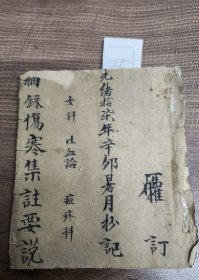 25
訂
光緒拾柒年辛卯暑月抄記
女科 吐血論 痘疹科
錄傷寒集註要説